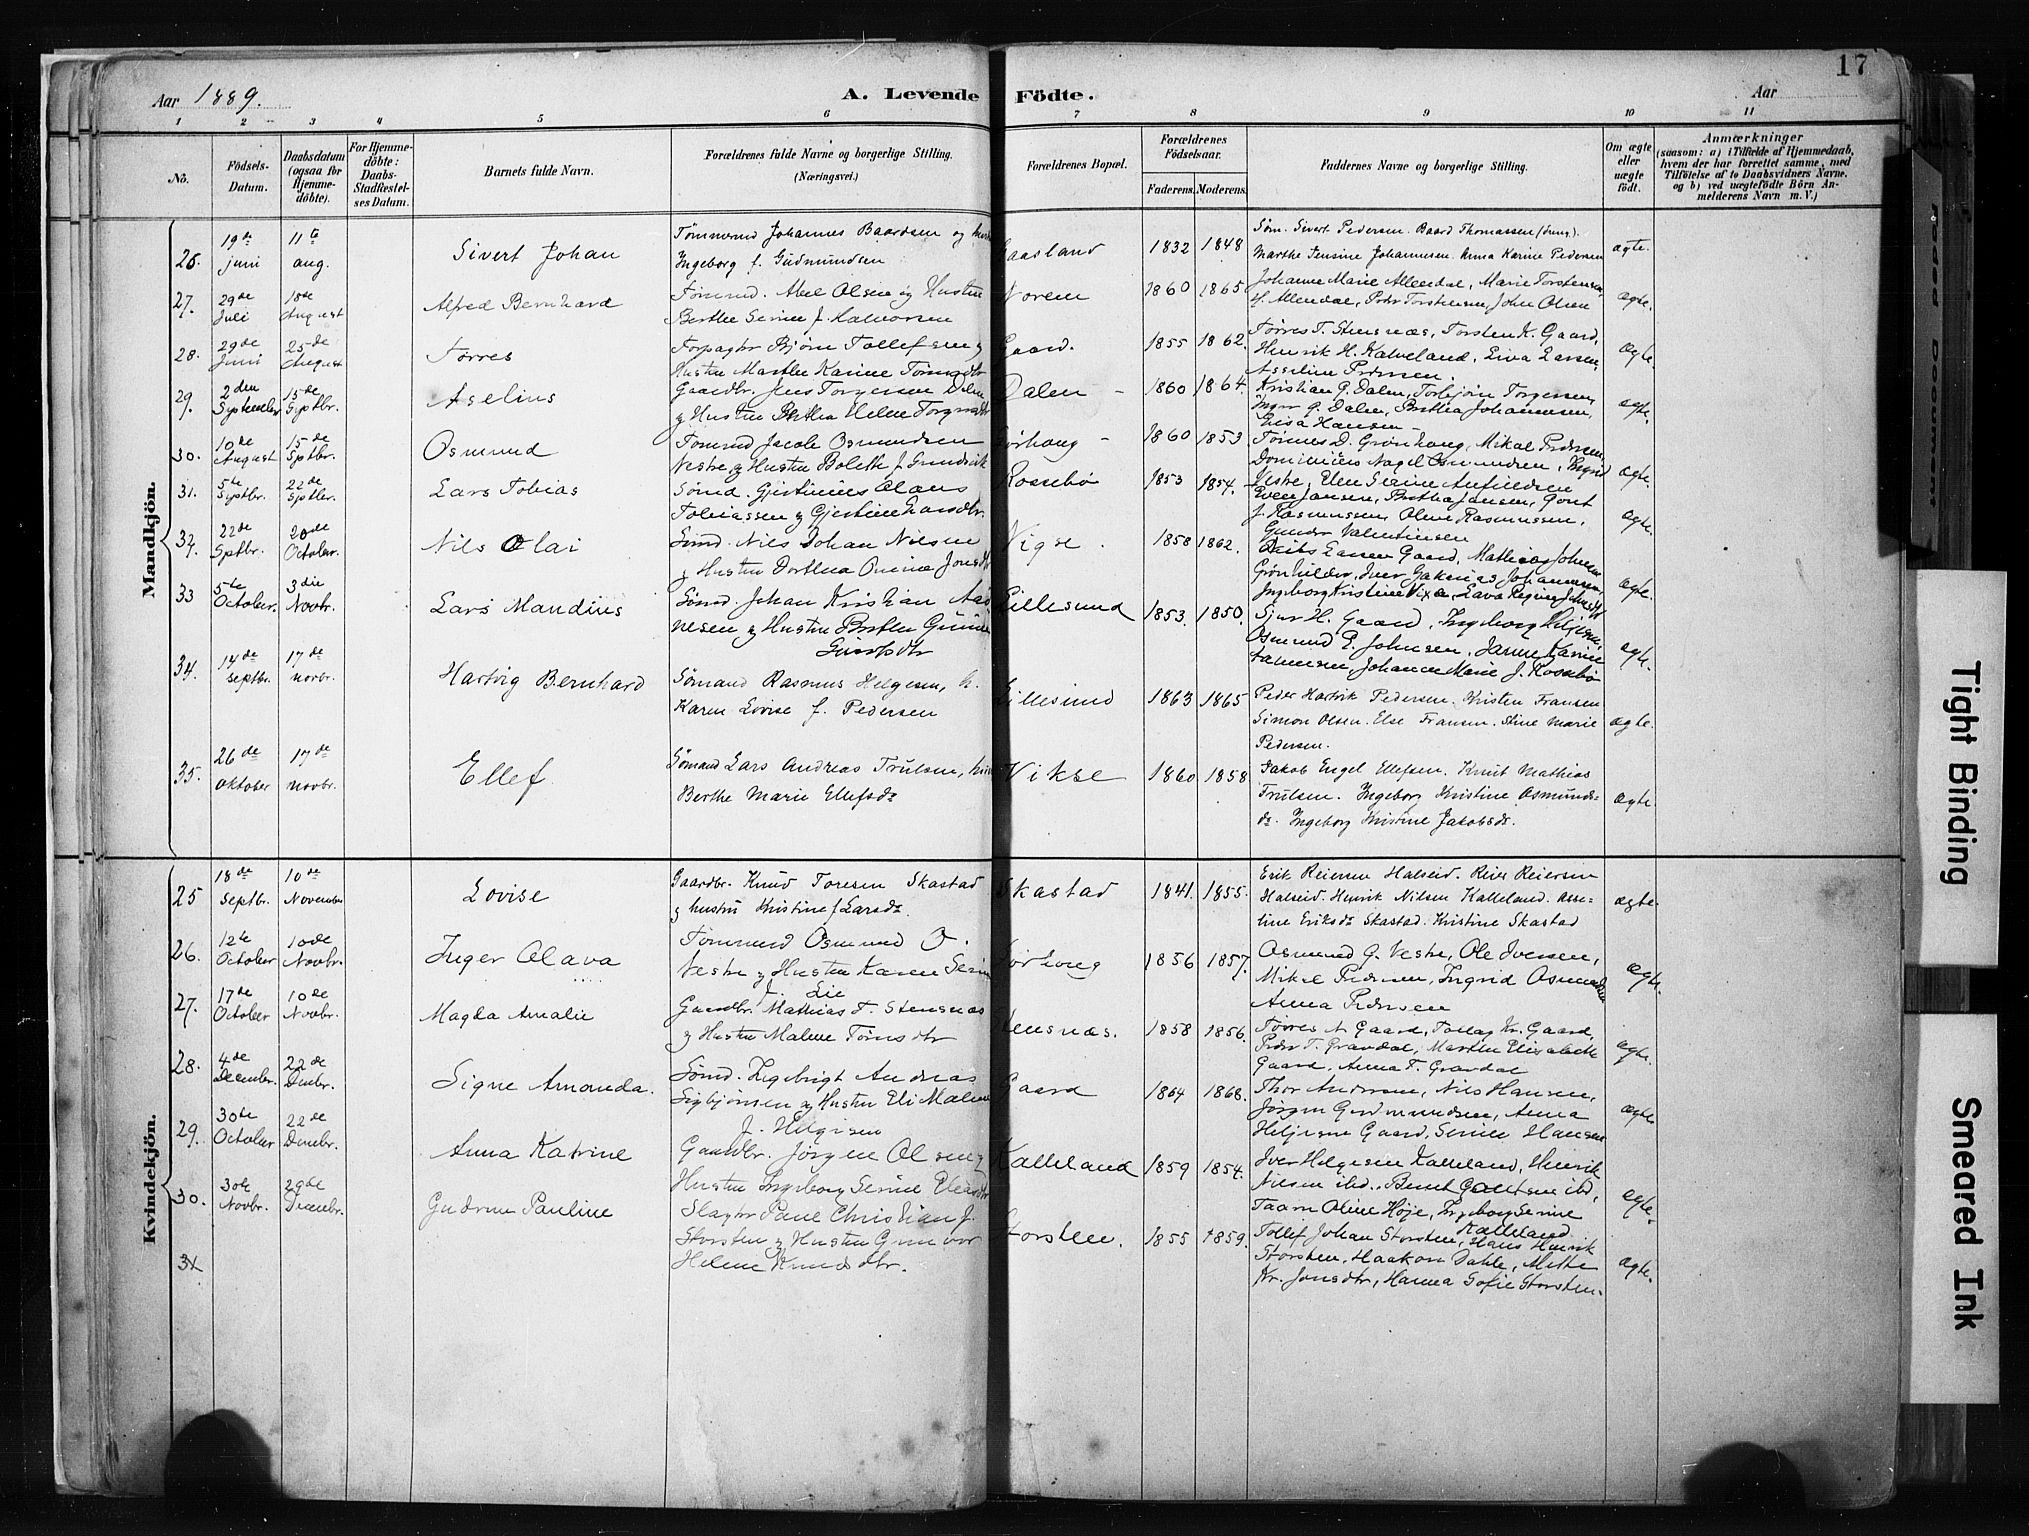 17
Aar 1889.
A. Levende Födte.
Aar
1 2 3 4 5 6 7 8 9 10 11
No.
Födsels-Datum.
Daabsdatum (ogsaa for Hjemme-döbte).
For Hjemme-döbte: Daabs-Stadfæstel-ses Datum.
Barnets fulde Navn.
Forældrenes fulde Navne og borgerlige Stilling. (Næringsvei.)
Forældrenes Bopæl.
Forældrenes Födselsaar.
Faderens. Moderens.
Faddernes Navne og borgerlige Stilling.
Om ægte eller uægte födt.
Anmærkninger
(saasom: a) i Tilfælde af Hjemmedaab,
hvem der har forrettet samme, med
Tilföielse af to Daabsvidners Navne,
og b) ved uægtefödte Börn An-
melderens Navn m. V.)
Mandkjön.
26. 19de juni 11te aug. Sivert Johan
Tømmermd Johannes Baardsen og
Ingeborg f. Gudmundsen
Gaasland 1832 1848
Søm. Sivert Pedersen. Baard Thomassen (ung).
Marthe Jensine Johannesen. Anna Karine Pedersen
ægte.
27. 29de Juli 18de August Alfred Bernhard
Tømmd. Abel Olsen og Hustru
Berthe Serine f. Halvorsen
Noren 1860 1865
Johanne Marie Allendal, Marie Torstensen,
Allendal, Peder Torstensen, John Olsen
ægte.
28. 29de Juni 25de August Tørres
Forpagter Bjørn Tollefsen og
Hustru Marthe Karine Tønnesdtr
Gaard. 1855 1862.
Tørres T. Stensnæs, Torsten K. Gaard,
Henrik H. Kalveland, Lava Larsen,
Asseline Pedersen.
ægte.
29. 2den September 15de Septbr. Aselius
Gaardbr. Jens Torgersen Dalen
og Hustru Bertha Helene
Dalen - 1860 1864.
Kristian G. Dalen, Torbjørn Torgersen,
Inger G. Dalen, Bertha Johannesen,
Lisa Hansen -
ægte.
30. 10de August 15de Septbr. Osmund
Tømmd Jacob Osmundsen
Veste og Hustru Bolette J.
Førhoug - 1860 1853
Tønnes D. Grønhoug, Mikal Pedersen,
Nagel Osmundsen, Ingrid
Veste, Elen Serine
ægte.
31. 5te Septbr. 22de Septbr. Lars Tobias
Sømd. Gjertinius Olaus
Tobiassen og Gjertine Larsdtr.
Rossebø 1853 1854.
Even Jansen, Bertha Jansen, Gort
J. Rasmussen, Oline Rasmussen,
Gunder Valentinsen
ægte.
32. 22de Septbr. 20de October. Nils Olai
Sømd. Nils Johan Nilsen
og Hustru Dorthea Jonsdtr
Vigse. 1858 1862.
Larsen Gaard, Mathias Johnsen
Grønhilder, Iver Johannesen,
Ingeborg Kristine Vixe, Lava Regine
ægte.
33 5te October. 3die Novbr. Lars Mandius
Sømd. Johan Kristian
og Hustru Berthe
Lillesund 1853. 1850.
Sjur H. Gaard, Ingeborg Helgesen,
Osmund E. Johnsen, Janne Karine
Johanne Marie J. Rossebø
ægte.
34. 14de septbr. 17de novbr. Hartvig Bernhard
Sømand Rasmus Helgesen, h.
Karen Lovise f. Pedersen
Lillesund 1863 1865
Peder Hartvik Pedersen. Kristen Fransen
Simon Olsen. Else Fransen. Aine Marie
Pedersen.
ægte.
35. 26de oktober 17de novbr. Ellef
Sømand Lars Andreas Trulsen,
Berthe Marie Ellefsdr
Vikse 1860 1858
Jakob Engel Ellefsen. Knut Mathias
Trulsen. Ingeborg Kristine Osmunds-
dr. Ingeborg Kristine Jakobsdr.
ægte.
Kvindekjön.
25 18de Septbr. 10de November Lovise
Gaardbr. Knud Toresen Skastad
og hustru Kristine f. Larsdr.
Skastad 1841. 1855.
Erik Reiersen Halseid. Reier Reiersen
Halseid. Henrik Nilsen Kalleland. Asse-
line Eriksdr Skastad. Kristine Skastad
ægte.
26. 12te October 10de Novbr. Inger Olava
Tømmermd Osmund O.
Veste og Hustru Karen Serine
f. Lie
Førhoug 1856 1857.
Osmund G. Veste, Ole Iversen,
Mikal Pedersen, Ingrid Osmundsen
Anna Pedersen
ægte.
27. 17de October 10de Novbr. Magda Amalie
Gaardbr. Mathias T. Stensnæs
og Hustru Malene Tønnesdtr
Stensnæs. 1858 1856.
Tørres N. Gaard, Tollag Kr. Gaard,
Peder T. Gravdal, Marthe Elisabeth
Gaard, Anna T. Gravdal
ægte.
28. 4de December. 22de Dember. Signe Amanda.
Sømd. Ingebrigt Andreas
Sigbjørnsen og Hustru Eli Malene
f. Helgesen
Gaard 1864 1868.
Thor Andersen, Nils Hansen,
Jørgen Gudmundsen, Anna
Helgesen Gaard, Serine Hansen
ægte
29. 30te October 22de Dember. Anna Katrine
Gaardbr. Jørgen Olsen og
Hustru Ingeborg Serine
Kalleland 1859 1854.
Iver Helgesen Kalleland, Henrik
Nilsen ibd., Bent ibd,
Oline Høje, Ingeborg Serine
Kalleland
ægte.
30. 30te Novbr. 29de Decembr. Gudrun Pauline
Slagter Paul Christian J.
Storsten og Hustru Gunvor
Helene Knudsdtr.
Storsten. 1855 1859.
Tollef Johan Storsten, Hans Henrik
Storsten, Haakon Dahle, Mette
Kr. Jonsdtr, Hanna Sofie Storsten.
ægte.
31
Tight Binding
Smeared Ink